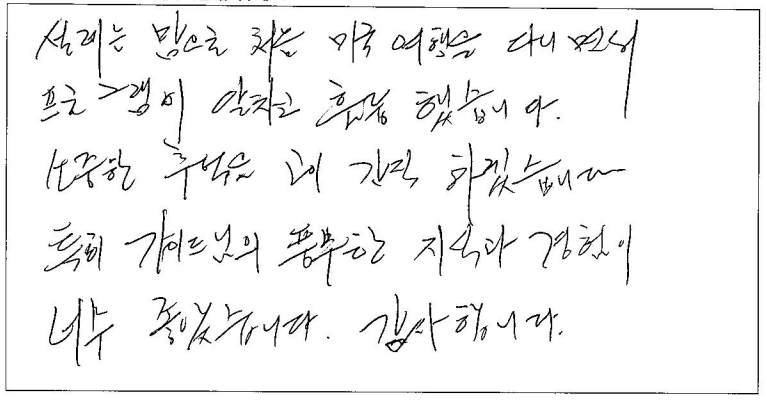 설레는 맘으로 처음 미국 여행을 다니면서
프로그램이 알차고 흡족 했습니다.
소중한 추억을 고이 간직 하겠습니다
특히 가이드님의 풍부한 지식과 경험이
너무 좋았습니다. 감사합니다.